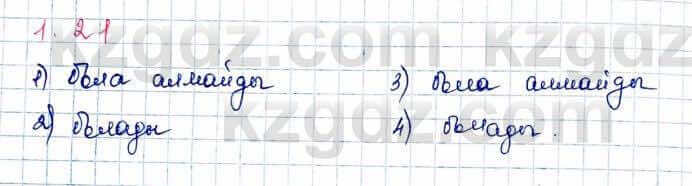 1.21
1) бола алмайды 3) бола алмайды
2) болады 4) болады.
kzgdz.com kzgdz
kzgdz.com